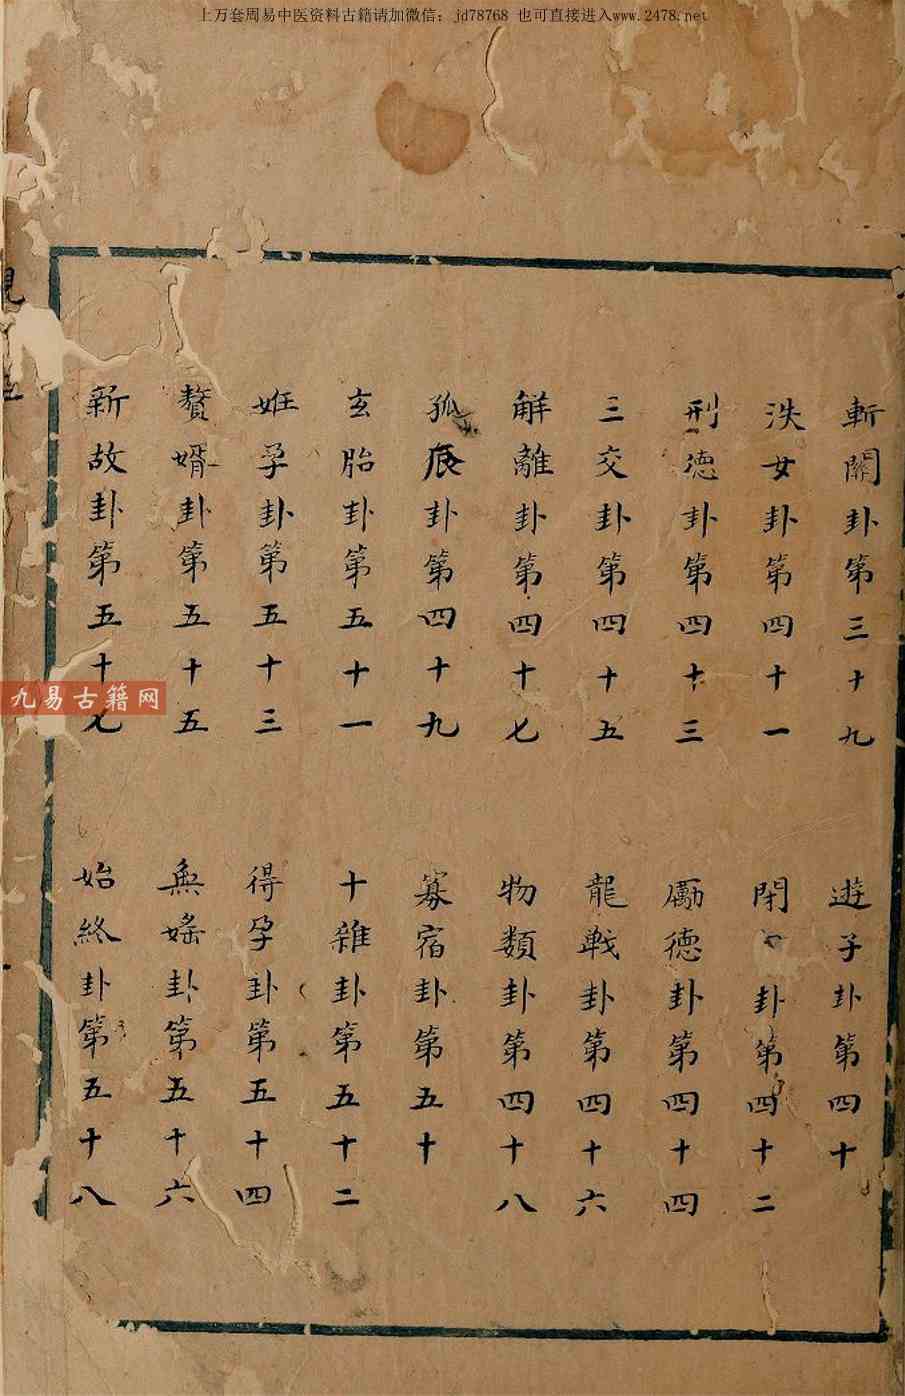 上万套周易中医资料古籍请加微信：jd78768 也可直接进入www.2478.net
斬關卦第三十九
遊子卦第四十
泆女卦第四十一
閉卦第四十二
刑德卦第四十三
勵德卦第四十四
三交卦第四十五
龍戰卦第四十六
解離卦第四十七
物類卦第四十八
孤辰卦第四十九
寡宿卦第五十
玄胎卦第五十一
十雜卦第五十二
姙孕卦第五十三
得孕卦第五十四
贅婿卦第五十五
無婬卦第五十六
新故卦第五十七
始終卦第五十八
九易古籍网